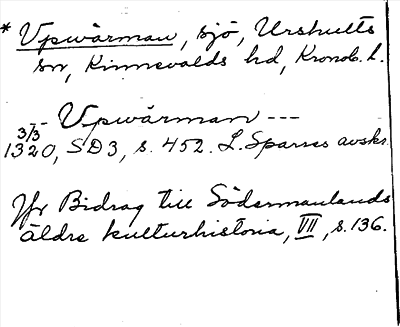 * Vpwärman, sjö, Urshults
sn, Kinnevalds hd, Kronob. l.
-- Vpwärman ---
3/3 1320, SD3, s. 452. L. Sparres avskr.
Jfr Bidrag till Södermanlands
äldre kulturhistoria, VII, s. 136.